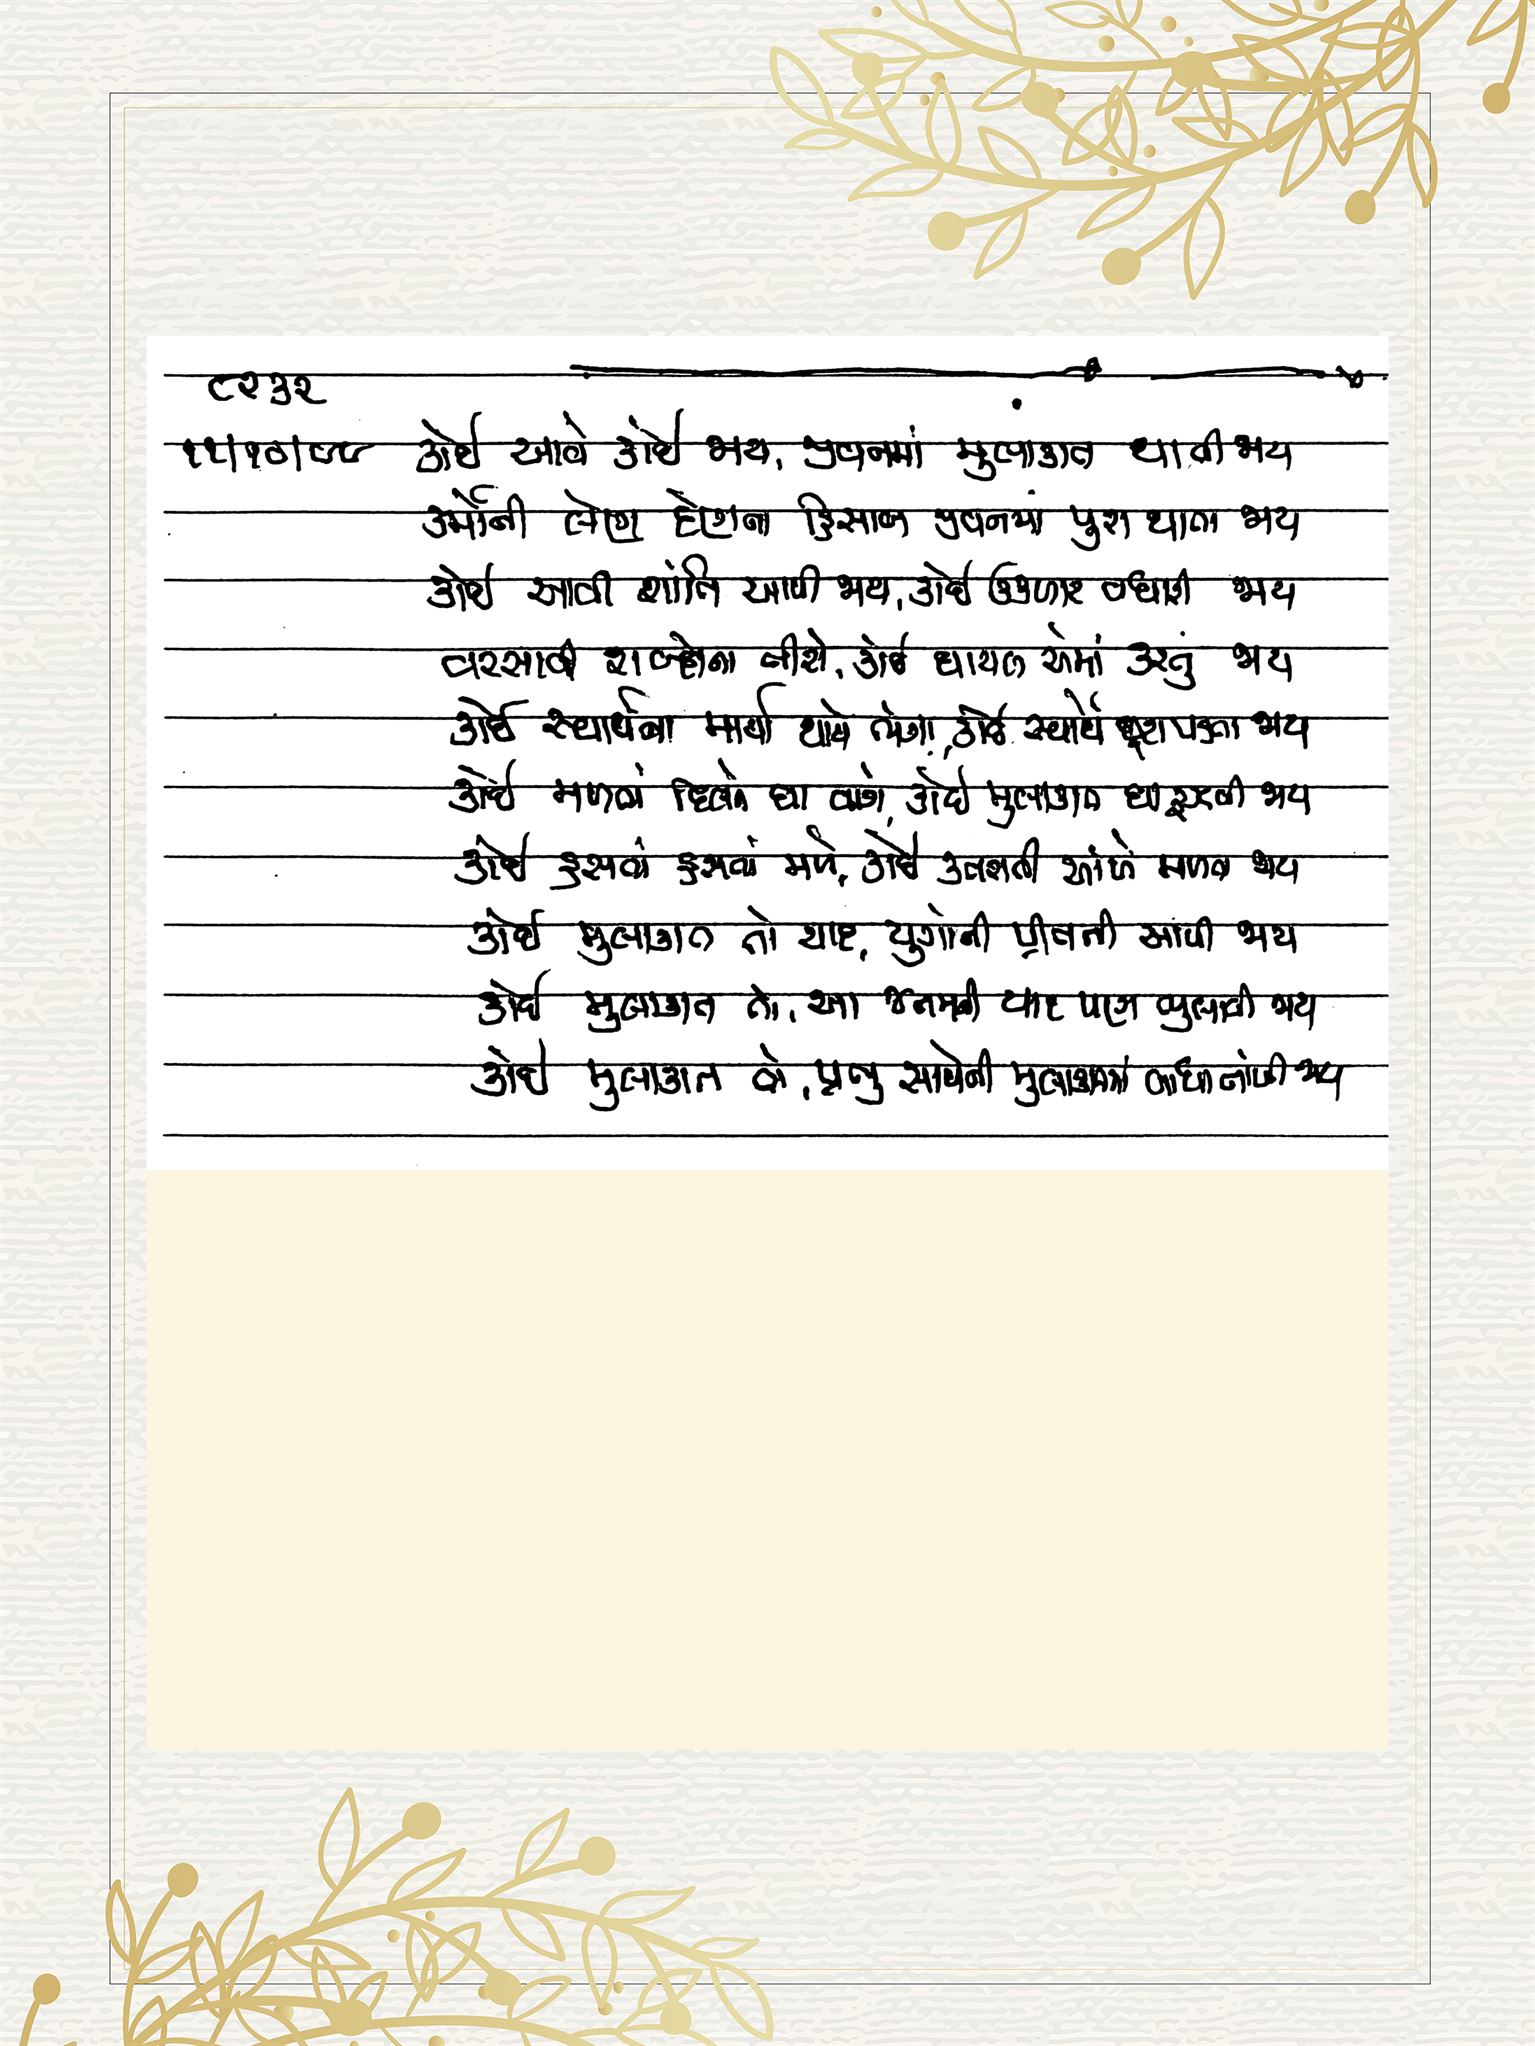 ૮૨૩૨
૧૧/૧૦/૯૯ કોઈ આવે કોઈ જાય, જીવનમાં મુલાકાત થાતી જાય
કર્મોની લેણ દેણના હિસાબ જીવનમાં પુરા થાતા જાય
કોઈ આવી શાંતિ આપી જાય, કોઈ ઉકળાટ વધારી જાય
વરસાવી શબ્દોના તીરો, કોઈ ઘાયલ એમાં કરતું જાય
કોઈ સ્વાર્થના માર્યા થાયે ભેગા, કોઈ સ્વાર્થે છૂટા પડતા જાય
કોઈ મળતાં દિલને ઘા લાગે, કોઈ મુલાકાત ઘા રૂઝવી જાય
કોઈ હસતાં હસતાં મળે, કોઈ કતરાતી આંખે મળતા જાય
કોઈ મુલાકાત તો યાદ, યુગોની પ્રીતની આપી જાય
કોઈ મુલાકાત તો, આ જનમની યાદ પણ ભુલાવી જાય
કોઈ મુલાકાત તો, પ્રભુ સાથેની મુલાકાતમાં બાધા નાંખી જાય